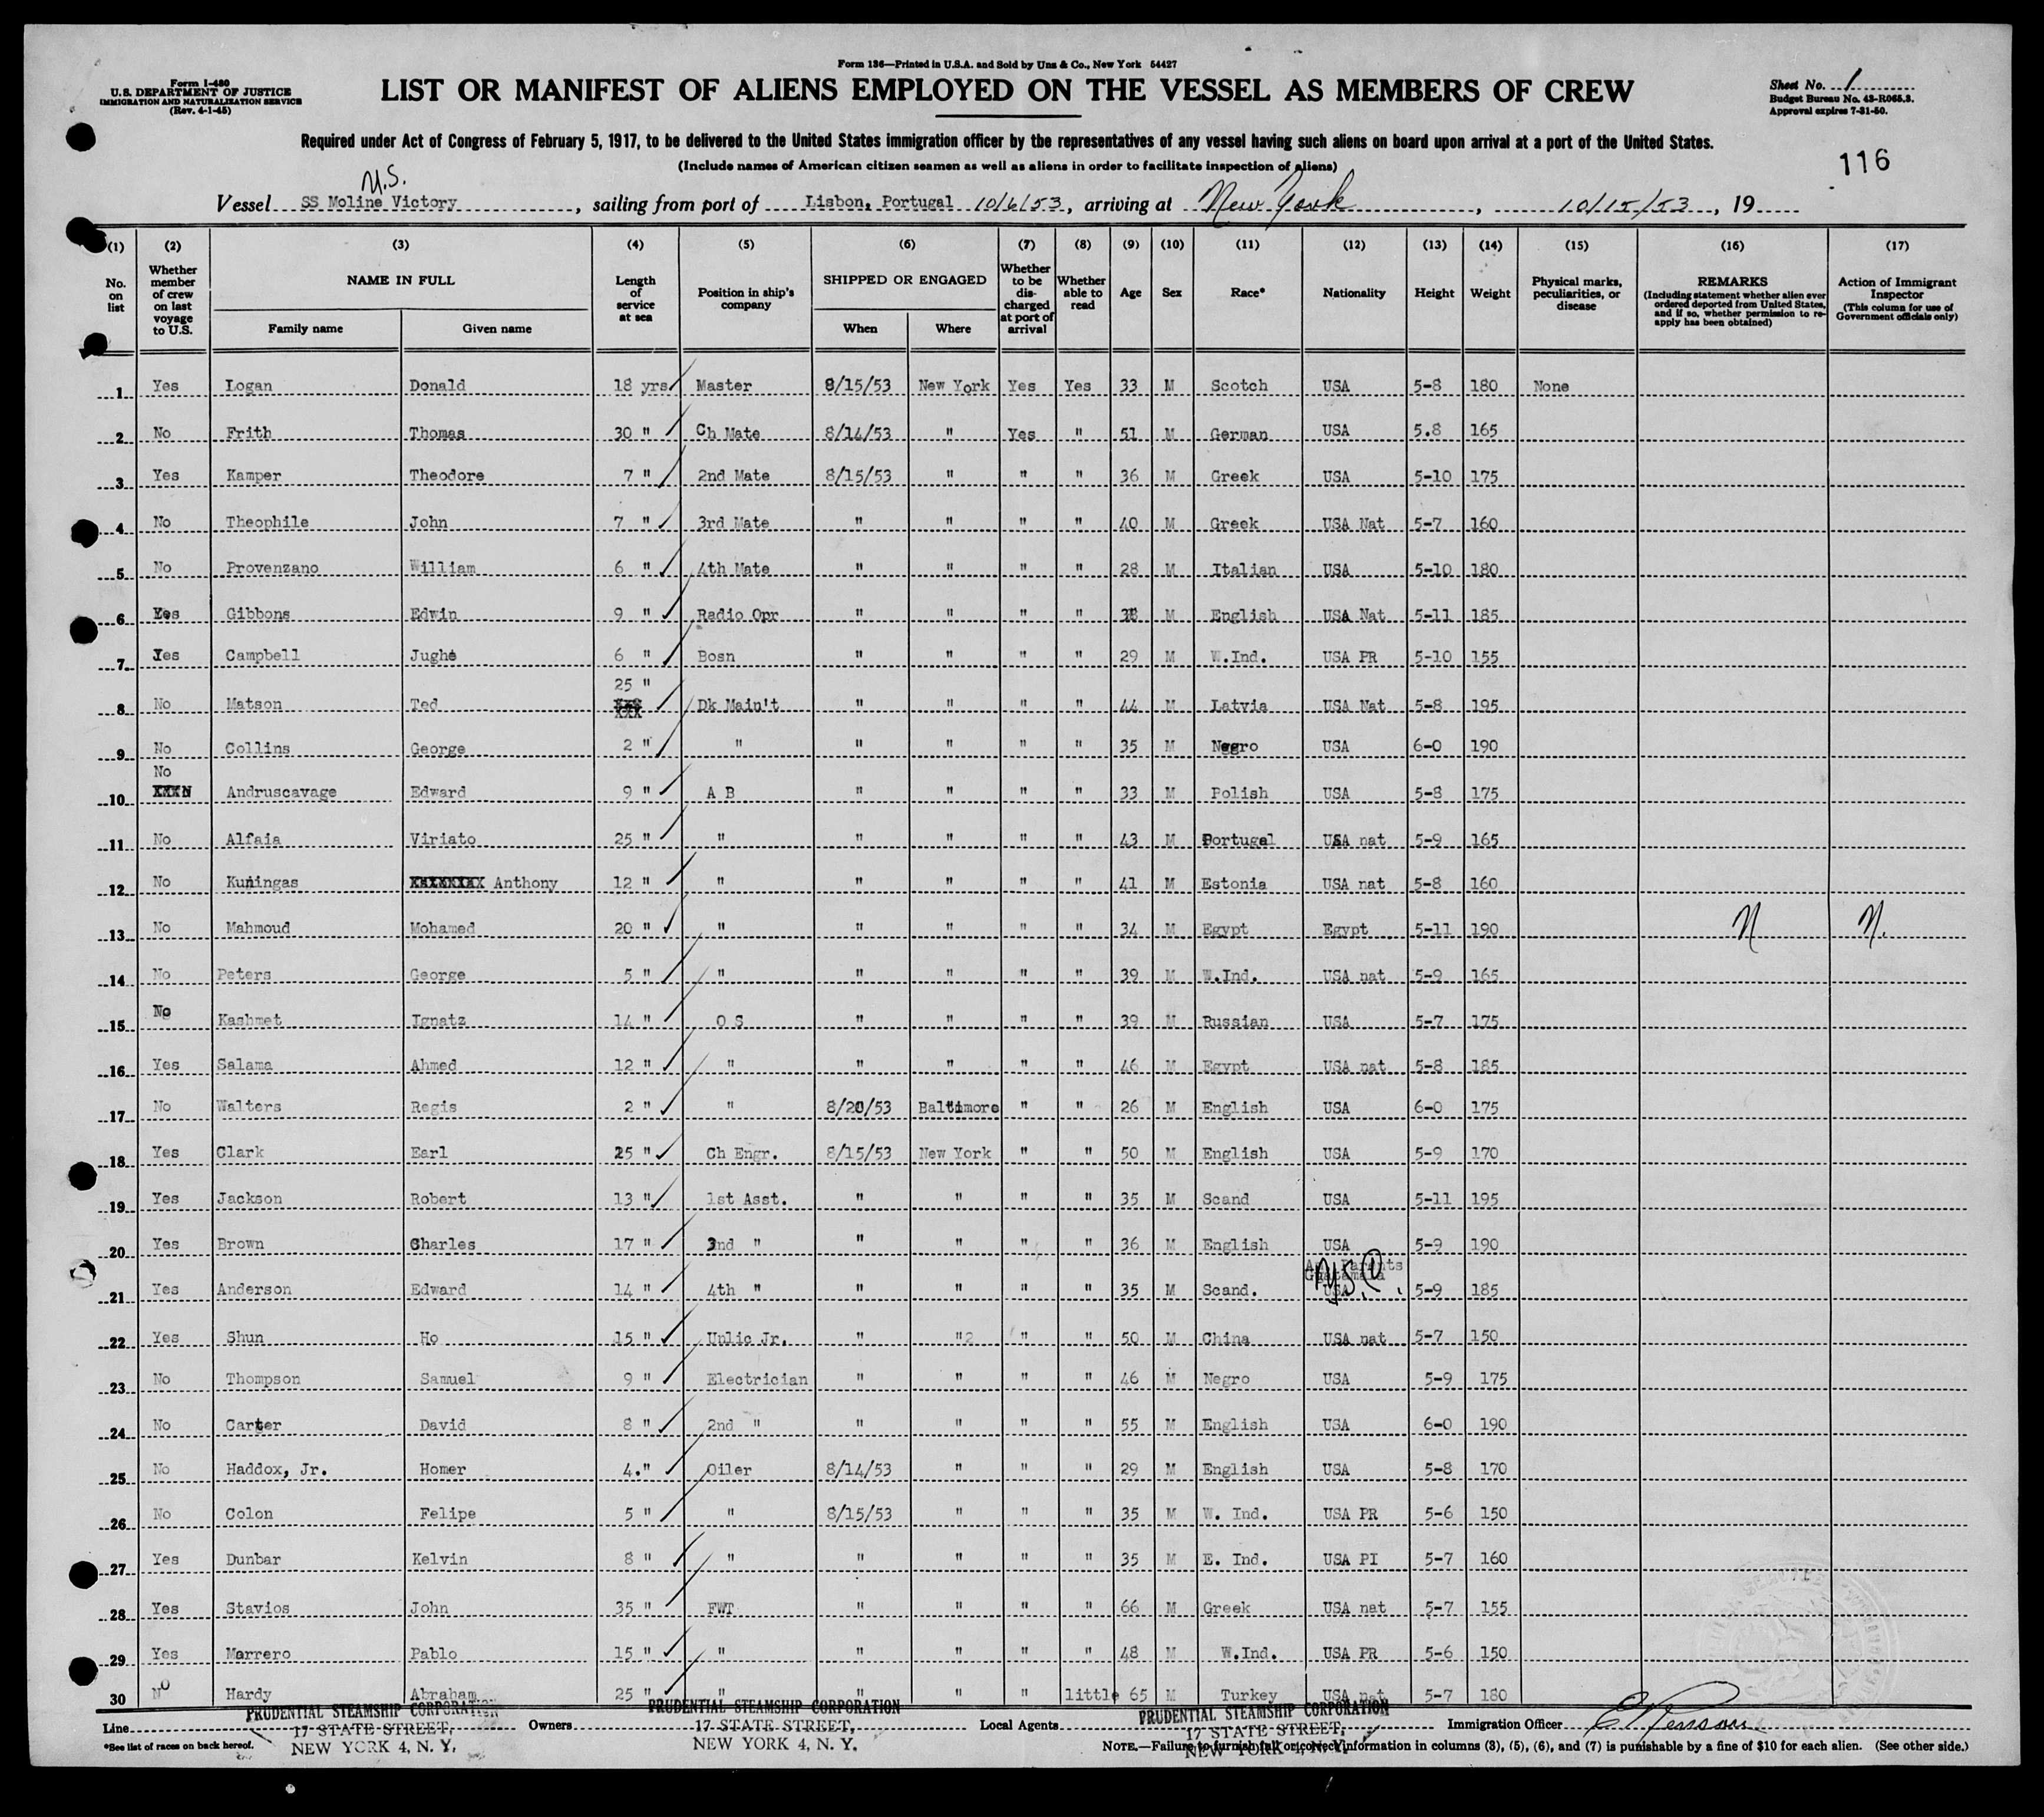 Form 136—Printed in U.S.A. and Sold by Uns & Co., New York 54427
Form I-480
U.S. DEPARTMENT OF JUSTICE
IMMIGRATION AND NATURALIZATION SERVICE
(Rev. 4-1-45)
LIST OR MANIFEST OF ALIENS EMPLOYED ON THE VESSEL AS MEMBERS OF CREW
Sheet No. 1
Budget Bureau No. 43-R065.3.
Approval expires 7-31-50.
Required under Act of Congress of February 5, 1917, to be delivered to the United States immigration officer by the representatives of any vessel having such aliens on board upon arrival at a port of the United States.
(Include names of American citizen seamen as well as aliens in order to facilitate inspection of aliens)
116
U.S.
Vessel SS Moline Victory, sailing from port of Lisbon, Portugal 10/6/53, arriving at New York, 10/15/53, 19
(1) (2) (3) (4) (5) (6) (7) (8) (9) (10) (11) (12) (13) (14) (15) (16) (17)
No. on list
Whether member of crew on last voyage to U.S.
NAME IN FULL
Family name Given name
Length of service at sea
Position in ship's company
SHIPPED OR ENGAGED
When Where
Whether to be discharged at port of arrival
Whether able to read
Age
Sex
Race*
Nationality
Height
Weight
Physical marks, peculiarities, or disease
REMARKS
(Including statement whether alien ever ordered deported from United States, and if so, whether permission to re-apply has been obtained)
Action of Immigrant Inspector
(This column for use of Government officials only)
1 Yes Logan Donald 18 yrs Master 8/15/53 New York Yes Yes 33 M Scotch USA 5-8 180 None
2 No Frith Thomas 30 " Ch Mate 8/14/53 " Yes " 51 M German USA 5.8 165
3 Yes Kamper Theodore 7 " 2nd Mate 8/15/53 " " " 36 M Greek USA 5-10 175
4 No Theophile John 7 " 3rd Mate " " " " 40 M Greek USA Nat 5-7 160
5 No Provenzano William 6 " 4th Mate " " " " 28 M Italian USA 5-10 180
6 Yes Gibbons Edwin 9 " Radio Opr " " " " M English USA Nat 5-11 185
7 Yes Campbell Jughe 6 " Bosn " " " " 29 M W.Ind. USA PR 5-10 155
8 No Matson Ted 25 " Dk Main't " " " " 44 M Latvia USA Nat 5-8 195
9 No Collins George 2 " " " " " " 35 M Negro USA 6-0 190
10 No Andruscavage Edward 9 " A B " " " " 33 M Polish USA 5-8 175
11 No Alfaia Viriato 25 " " " " " " 43 M Portugal USA nat 5-9 165
12 No Kuningas Anthony 12 " " " " " " 41 M Estonia USA nat 5-8 160
13 No Mahmoud Mohamed 20 " " " " " " 34 M Egypt Egypt 5-11 190 N N.
14 No Peters George 5 " " " " " " 39 M W.Ind. USA nat 5-9 165
15 No Kashmet Ignatz 14 " O S " " " " 39 M Russian USA 5-7 175
16 Yes Salama Ahmed 12 " " " " " " 46 M Egypt USA nat 5-8 185
17 No Walters Regis 2 " " 8/20/53 Baltimore " " 26 M English USA 6-0 175
18 Yes Clark Earl 25 " Ch Engr. 8/15/53 New York " " 50 M English USA 5-9 170
19 Yes Jackson Robert 13 " 1st Asst. " " " " 35 M Scand USA 5-11 195
20 Yes Brown Charles 17 " " " " " " 36 M English USA 5-9 190
21 Yes Anderson Edward 14 " 4th " " " " " 35 M Scand. Parents Guatamala USA 5-9 185
22 Yes Shun Ho 15 " Unlic Jr. " "2 " " 50 M China USA nat 5-7 150
23 No Thompson Samuel 9 " Electrician " " " " 46 M Negro USA 5-9 175
24 No Carter David 8 " 2nd " " " " " 55 M English USA 6-0 190
25 No Haddox, Jr. Homer 4." Oiler 8/14/53 " " " 29 M English USA 5-8 170
26 No Colon Felipe 5 " " 8/15/53 " " " 35 M W. Ind. USA PR 5-6 150
27 Yes Dunbar Kelvin 8 " " " " " " 35 M E. Ind. USA PI 5-7 160
28 Yes Stavios John 35 " FWT " " " " 66 M Greek USA nat 5-7 155
29 Yes Marrero Pablo 15 " " " " " " 48 M W.Ind. USA PR 5-6 150
30 No Hardy Abraham 25 " " " " " little 65 M Turkey USA nat 5-7 180
Line PRUDENTIAL STEAMSHIP CORPORATION 17 STATE STREET, NEW YORK 4, N. Y.
Owners PRUDENTIAL STEAMSHIP CORPORATION 17 STATE STREET, NEW YORK 4, N. Y.
Local Agents PRUDENTIAL STEAMSHIP CORPORATION 17 STATE STREET, NEW YORK 4, N. Y.
Immigration Officer
*See list of races on back hereof.
NOTE.—Failure to furnish full or correct information in columns (3), (5), (6), and (7) is punishable by a fine of $10 for each alien. (See other side.)